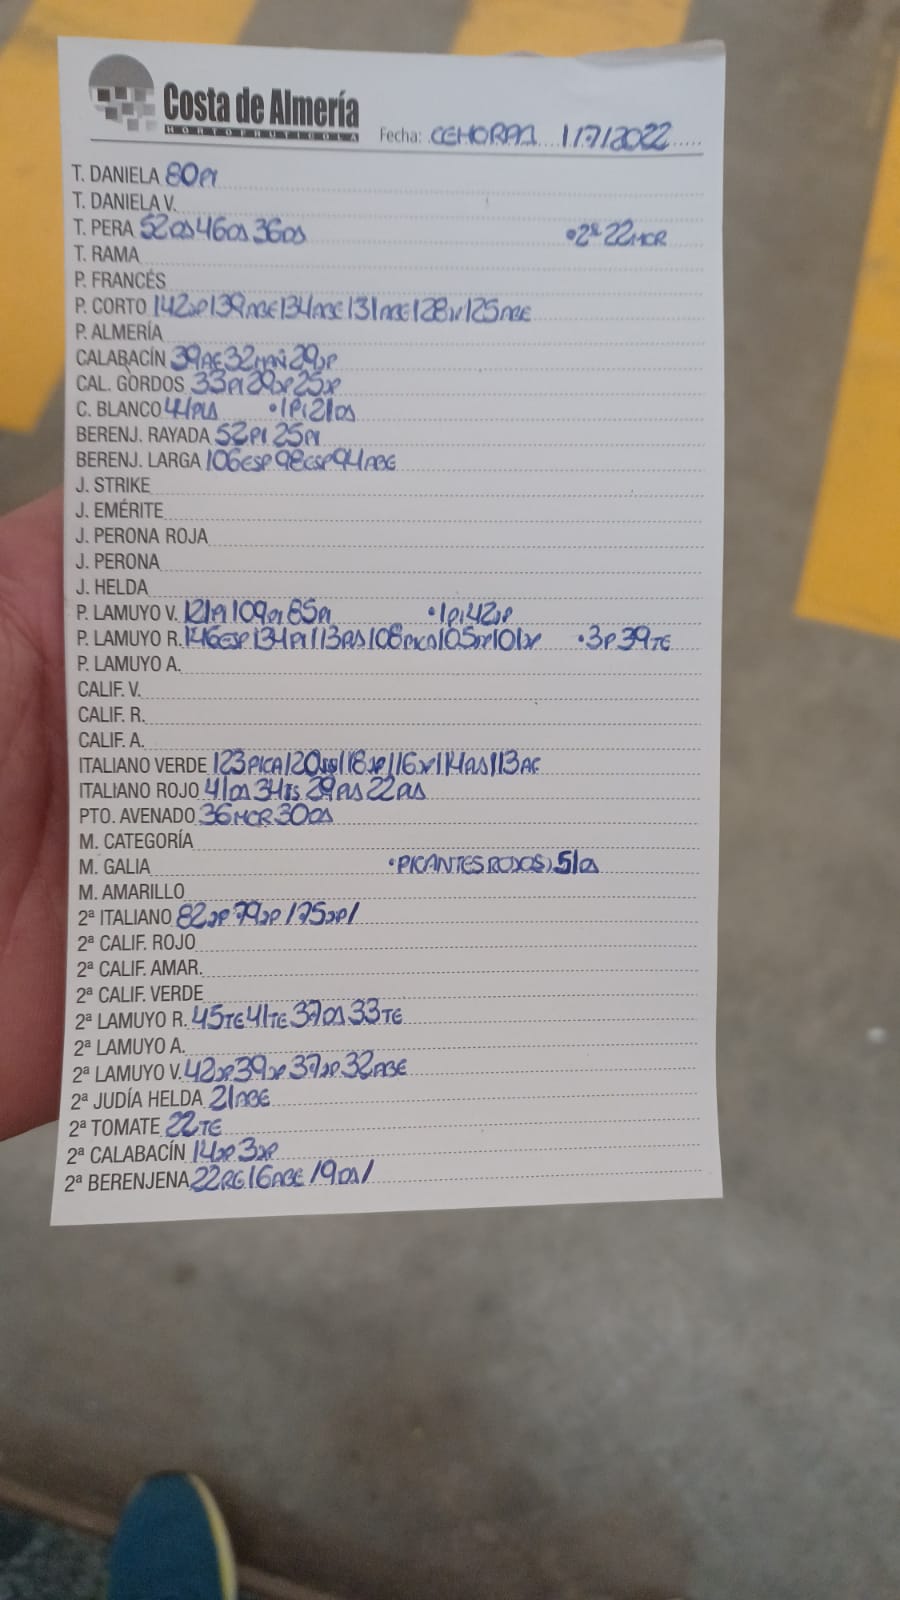 Costa de Almería
HORTOFRUTICOLA
Fecha: CEHORPA 1/7/2022
T. DANIELA 80PI
T. DANIELA V.
T. PERA 52DS 46DS 36DS •2ª 22MCR
T. RAMA
P. FRANCÉS
P. CORTO 142JP 139ABE 134ABE 131ABE 128 125ABE
P. ALMERÍA
CALABACÍN 39AE 32MAÑ 29JP
CAL. GORDOS 33PI 29JP 25JP
C. BLANCO 44PLA •1P; 21DS
BERENJ. RAYADA 52PI 25PI
BERENJ. LARGA 106ESP 98ESP 94ABE
J. STRIKE
J. EMÉRITE
J. PERONA ROJA
J. PERONA
J. HELDA
P. LAMUYO V. 121PI 109PI 85PI •1P; 42JP
P. LAMUYO R. 146ESP 134PI 113 108 105 101JP •3P 39TE
P. LAMUYO A.
CALIF. V.
CALIF. R.
CALIF. A.
ITALIANO VERDE 123PICA 120 118JP 116JP 114 113AE
ITALIANO ROJO 41DS 34 29 22
PTO. AVENADO 36MCR 30DS
M. CATEGORÍA
M. GALIA •PICANTES ROJOS) 51
M. AMARILLO
2ª ITALIANO 82JP 79JP /75JP/
2ª CALIF. ROJO
2ª CALIF. AMAR.
2ª CALIF. VERDE
2ª LAMUYO R. 45TE 41TE 37DS 33TE
2ª LAMUYO A.
2ª LAMUYO V. 42JP 39JP 37JP 32ABE
2ª JUDÍA HELDA 21ABE
2ª TOMATE 22TE
2ª CALABACÍN 14JP 3JP
2ª BERENJENA 22RE 16ABE /9DS/